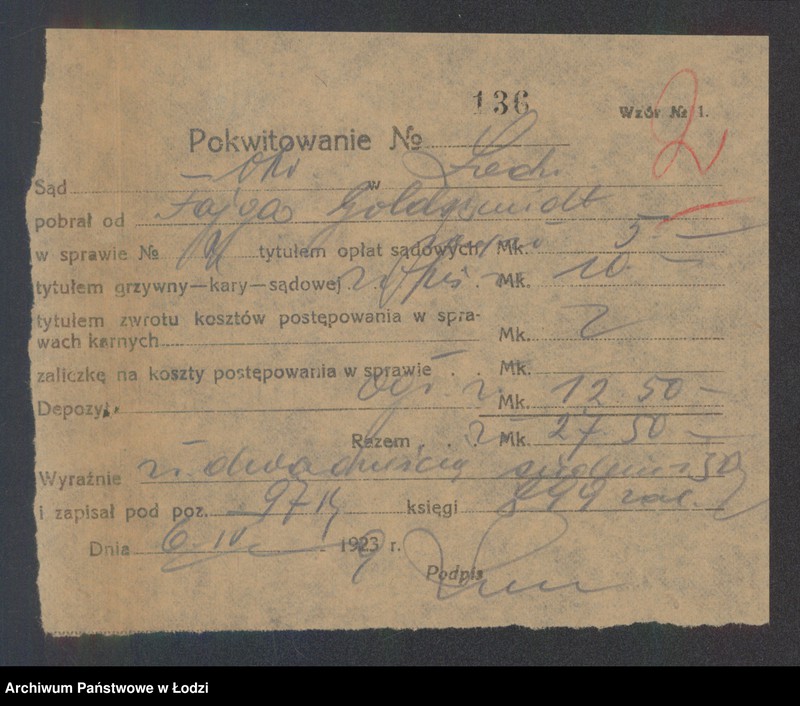 136
Wzór № 1.
2
Pokwitowanie №
Sąd Okr. w Łodzi
pobrał od Fajga Goldszmidt
w sprawie № tytułem opłat sądowych Mk. 5 —
tytułem grzywny—kary—sądowej Mk. 10 —
tytułem zwrotu kosztów postępowania w spra-
wach karnych Mk.
zaliczkę na koszty postępowania w sprawie . . Mk.
Depozyt ogł. Mk. 12.50 —
Razem . . . Mk. 27.50 —
Wyraźnie zł. dwadzieścia siedem 50
i zapisał pod poz. księgi
Dnia 6.IV 1923 r.
Podpis
Archiwum Państwowe w Łodzi